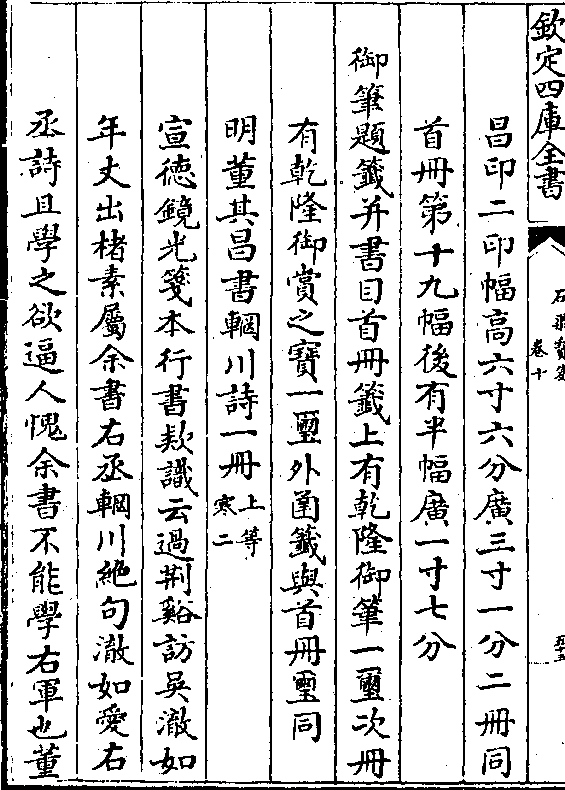 欽定四庫全書
卷十
昌印二印幅高六寸六分廣三寸一分二冊同
首冊第十九幅後有半幅廣一寸七分
御筆題籤并書目首冊籤上有乾隆御筆一璽次冊
有乾隆御賞之寶一璽外函籤與首冊璽同
明董其昌書輞川詩一冊上等寒二
宣德鏡光箋本行書款識云過荆谿訪吳澈如
年丈出楮素屬余書右丞輞川絶句澈如愛右
丞詩且學之欲逼人愧余書不能學右軍也董